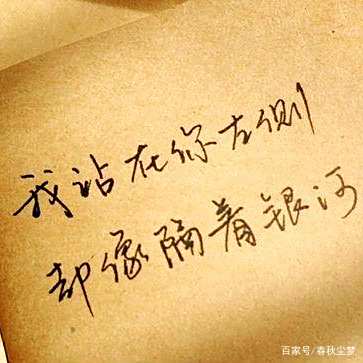 我站在你左侧
却像隔着银河
百家号/春秋尘梦